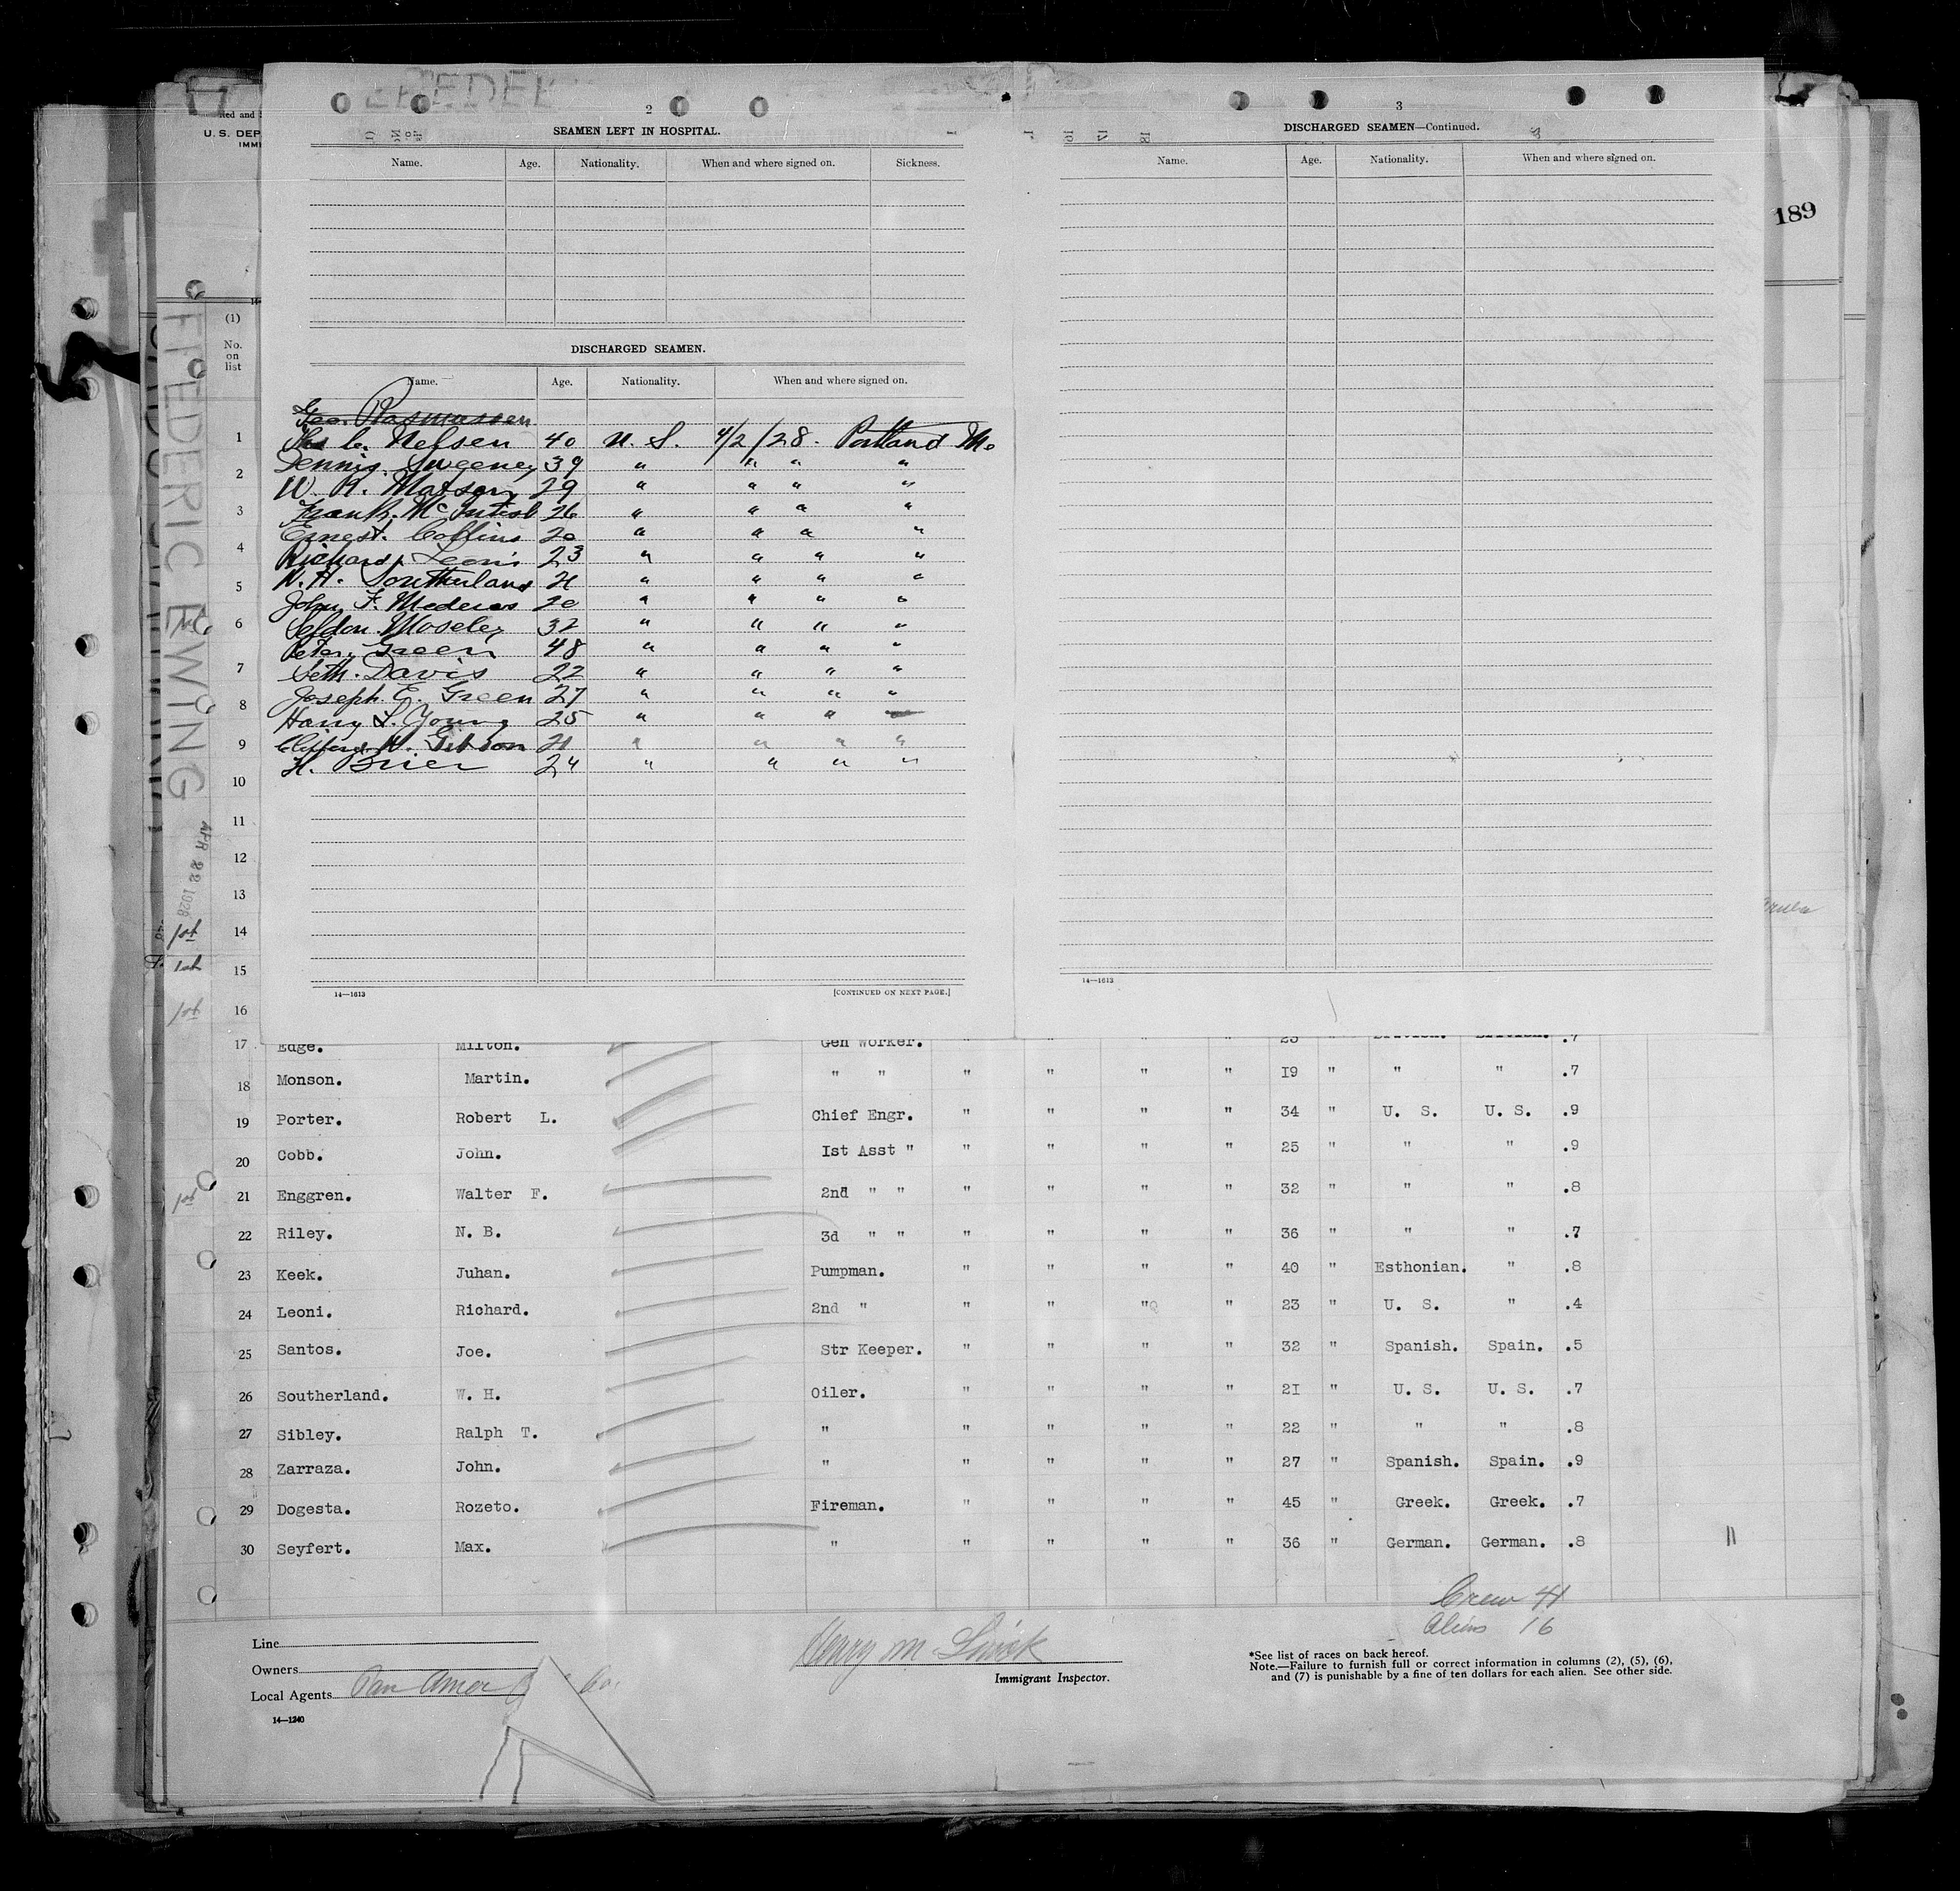 189
ted and
U. S. DEP
IMMI
FREDERIC R. EWING
APR 22 1928
(1)
No.
on
list
2
SEAMEN LEFT IN HOSPITAL.
Name. Age. Nationality. When and where signed on. Sickness.
DISCHARGED SEAMEN.
Name. Age. Nationality. When and where signed on.
Geo. Rasmussen
C. Nelsen 40 U. S. 4/2/28. Portland Me
Dennis. Sweeney 39 " " " "
W. R. Matson 29 " " " "
Frank. McIntish 26 " " " "
Ernest. Collins 20 " " " "
Richard Leoni 23 " " " "
W. H. Southerland 21 " " " "
John F. Mederos 20 " " " "
Seldon. Moseley 32 " " " "
Peter. Green 48 " " " "
Seth. Davis 22 " " " "
Joseph. E. Green 27 " " " "
Harry L. Young 25 " " "
Clifford H. Gibson 21 " " " "
H. Brier 24 " " " "
14—1613
[CONTINUED ON NEXT PAGE.]
3
DISCHARGED SEAMEN—Continued.
Name. Age. Nationality. When and where signed on.
14—1613
1
2
3
4
5
6
7
8
9
10
11
12
13
1st 14
1st 15
1st 16
17 Edge. Milton. Gen Worker. " " " " 23 " British. British. .7
18 Monson. Martin. " " " " " " 19 " " " .7
19 Porter. Robert L. Chief Engr. " " " " 34 " U. S. U. S. .9
20 Cobb. John. 1st Asst " " " " " 25 " " " .9
1st 21 Enggren. Walter F. 2nd " " " " " " 32 " " " .8
22 Riley. N. B. 3d " " " " " " 36 " " " .7
23 Keek. Juhan. Pumpman. " " " " 40 " Esthonian. " .8
24 Leoni. Richard. 2nd " " " " " 23 " U. S. " .4
25 Santos. Joe. Str Keeper. " " " " 32 " Spanish. Spain. .5
26 Southerland. W. H. Oiler. " " " " 21 " U. S. U. S. .7
27 Sibley. Ralph T. " " " " " 22 " " " .8
28 Zarraza. John. " " " " " 27 " Spanish. Spain. .9
29 Dogesta. Rozeto. Fireman. " " " " 45 " Greek. Greek. .7
30 Seyfert. Max. " " " " " 36 " German. German. .8
Crew 41
Aliens 16
Line
Owners
Local Agents Pan Amer Co.
14—1240
Henry M
Immigrant Inspector.
*See list of races on back hereof.
Note.—Failure to furnish full or correct information in columns (2), (5), (6),
and (7) is punishable by a fine of ten dollars for each alien. See other side.